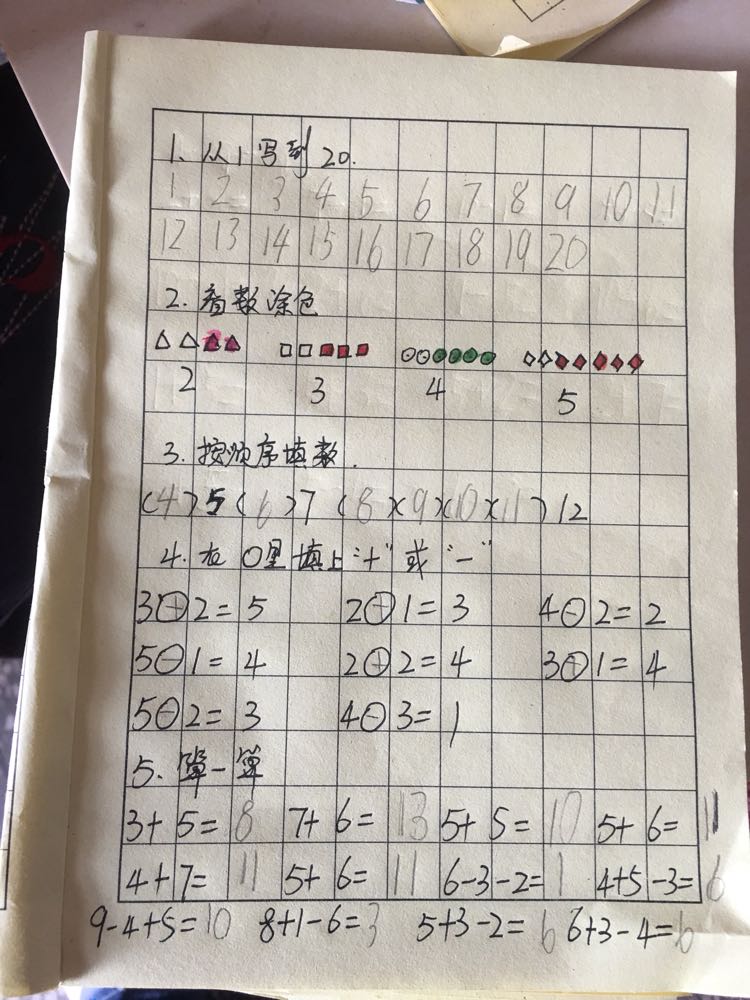 1. 从1写到20.
1 2 3 4 5 6 7 8 9 10 11
12 13 14 15 16 17 18 19 20
2. 看数涂色
2 3 4 5
3. 按顺序填数.
(4)5(6)7(8)(9)(10)(11)12
4. 在○里填上"+"或"-"
3+2=5 2+1=3 4-2=2
5-1=4 2+2=4 3+1=4
5-2=3 4-3=1
5. 算一算
3+5=8 7+6=13 5+5=10 5+6=11
4+7=11 5+6=11 6-3-2=1 4+5-3=6
9-4+5=10 8+1-6=3 5+3-2=6 6+3-4=6